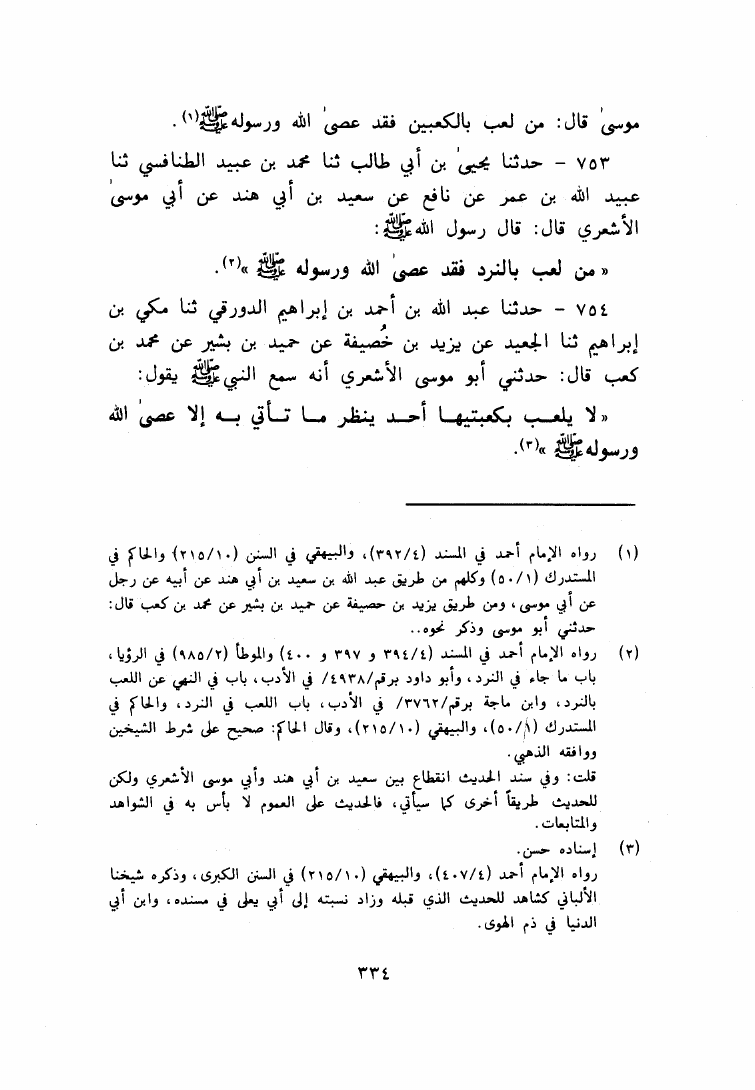 موسىٰ قال: من لعب بالكعبين فقد عصىٰ الله ورسوله ﷺ(١).
٧٥٣ - حدثنا يحيىٰ بن أبي طالب ثنا محمد بن عبيد الطنافسي ثنا
عبيد الله بن عمر عن نافع عن سعيد بن أبي هند عن أبي موسىٰ
الأشعري قال: قال رسول الله ﷺ:
«من لعب بالنرد فقد عصىٰ الله ورسوله ﷺ»(٢).
٧٥٤ - حدثنا عبد الله بن أحمد بن إبراهيم الدورقي ثنا مكي بن
إبراهيم ثنا الجعيد عن يزيد بن خُصيفة عن حميد بن بشير عن محمد بن
كعب قال: حدثني أبو موسى الأشعري أنه سمع النبي ﷺ يقول:
«لا يلعـب بكعبتيهـا أحـد ينظر مـا تـأتي بـه إلا عصىٰ الله
ورسوله ﷺ»(٣).
(١) رواه الإمام أحمد في المسند (٣٩٢/٤)، والبيهقي في السنن (٢١٥/١٠) والحاكم في
المستدرك (٥٠/١) وكلهم من طريق عبد الله بن سعيد بن أبي هند عن أبيه عن رجل
عن أبي موسى، ومن طريق يزيد بن حصيفة عن حميد بن بشير عن محمد بن كعب قال:
حدثني أبو موسى وذكر نحوه..
(٢) رواه الإمام أحمد في المسند (٣٩٤/٤ و ٣٩٧ و ٤٠٠) والموطأ (٩٨٥/٢) في الرؤيا،
باب ما جاء في النرد، وأبو داود برقم/٤٩٣٨/ في الأدب، باب في النهي عن اللعب
بالنرد، وابن ماجة برقم/٣٧٦٢/ في الأدب، باب اللعب في النرد، والحاكم في
المستدرك (٥٠/١)، والبيهقي (٢١٥/١٠)، وقال الحاكم: صحيح على شرط الشيخين
ووافقه الذهبي.
قلت: وفي سند الحديث انقطاع بين سعيد بن أبي هند وأبي موسى الأشعري ولكن
للحديث طريقاً أخرى كما سيأتي، فالحديث على العموم لا بأس به في الشواهد
والمتابعات.
(٣) إسناده حسن.
رواه الإمام أحمد (٤٠٧/٤)، والبيهقي (٢١٥/١٠) في السنن الكبرى، وذكره شيخنا
الألباني كشاهد للحديث الذي قبله وزاد نسبته إلى أبي يعلى في مسنده، وابن أبي
الدنيا في ذم الهوى.
٣٣٤